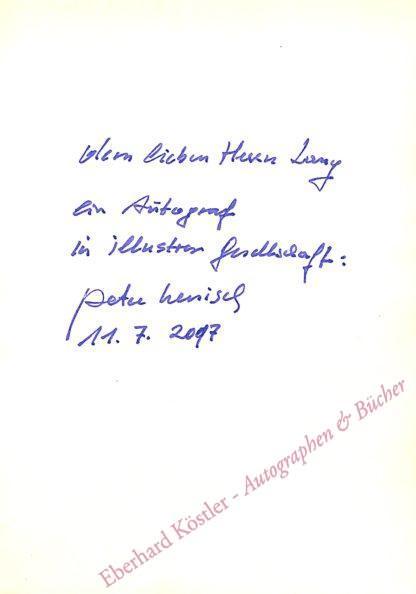 dem lieben Herrn Lang
ein Autograf
in illustrer Gesellschaft:
peter henisch
11. 7. 2007
Eberhard Köstler - Autographen & Bücher